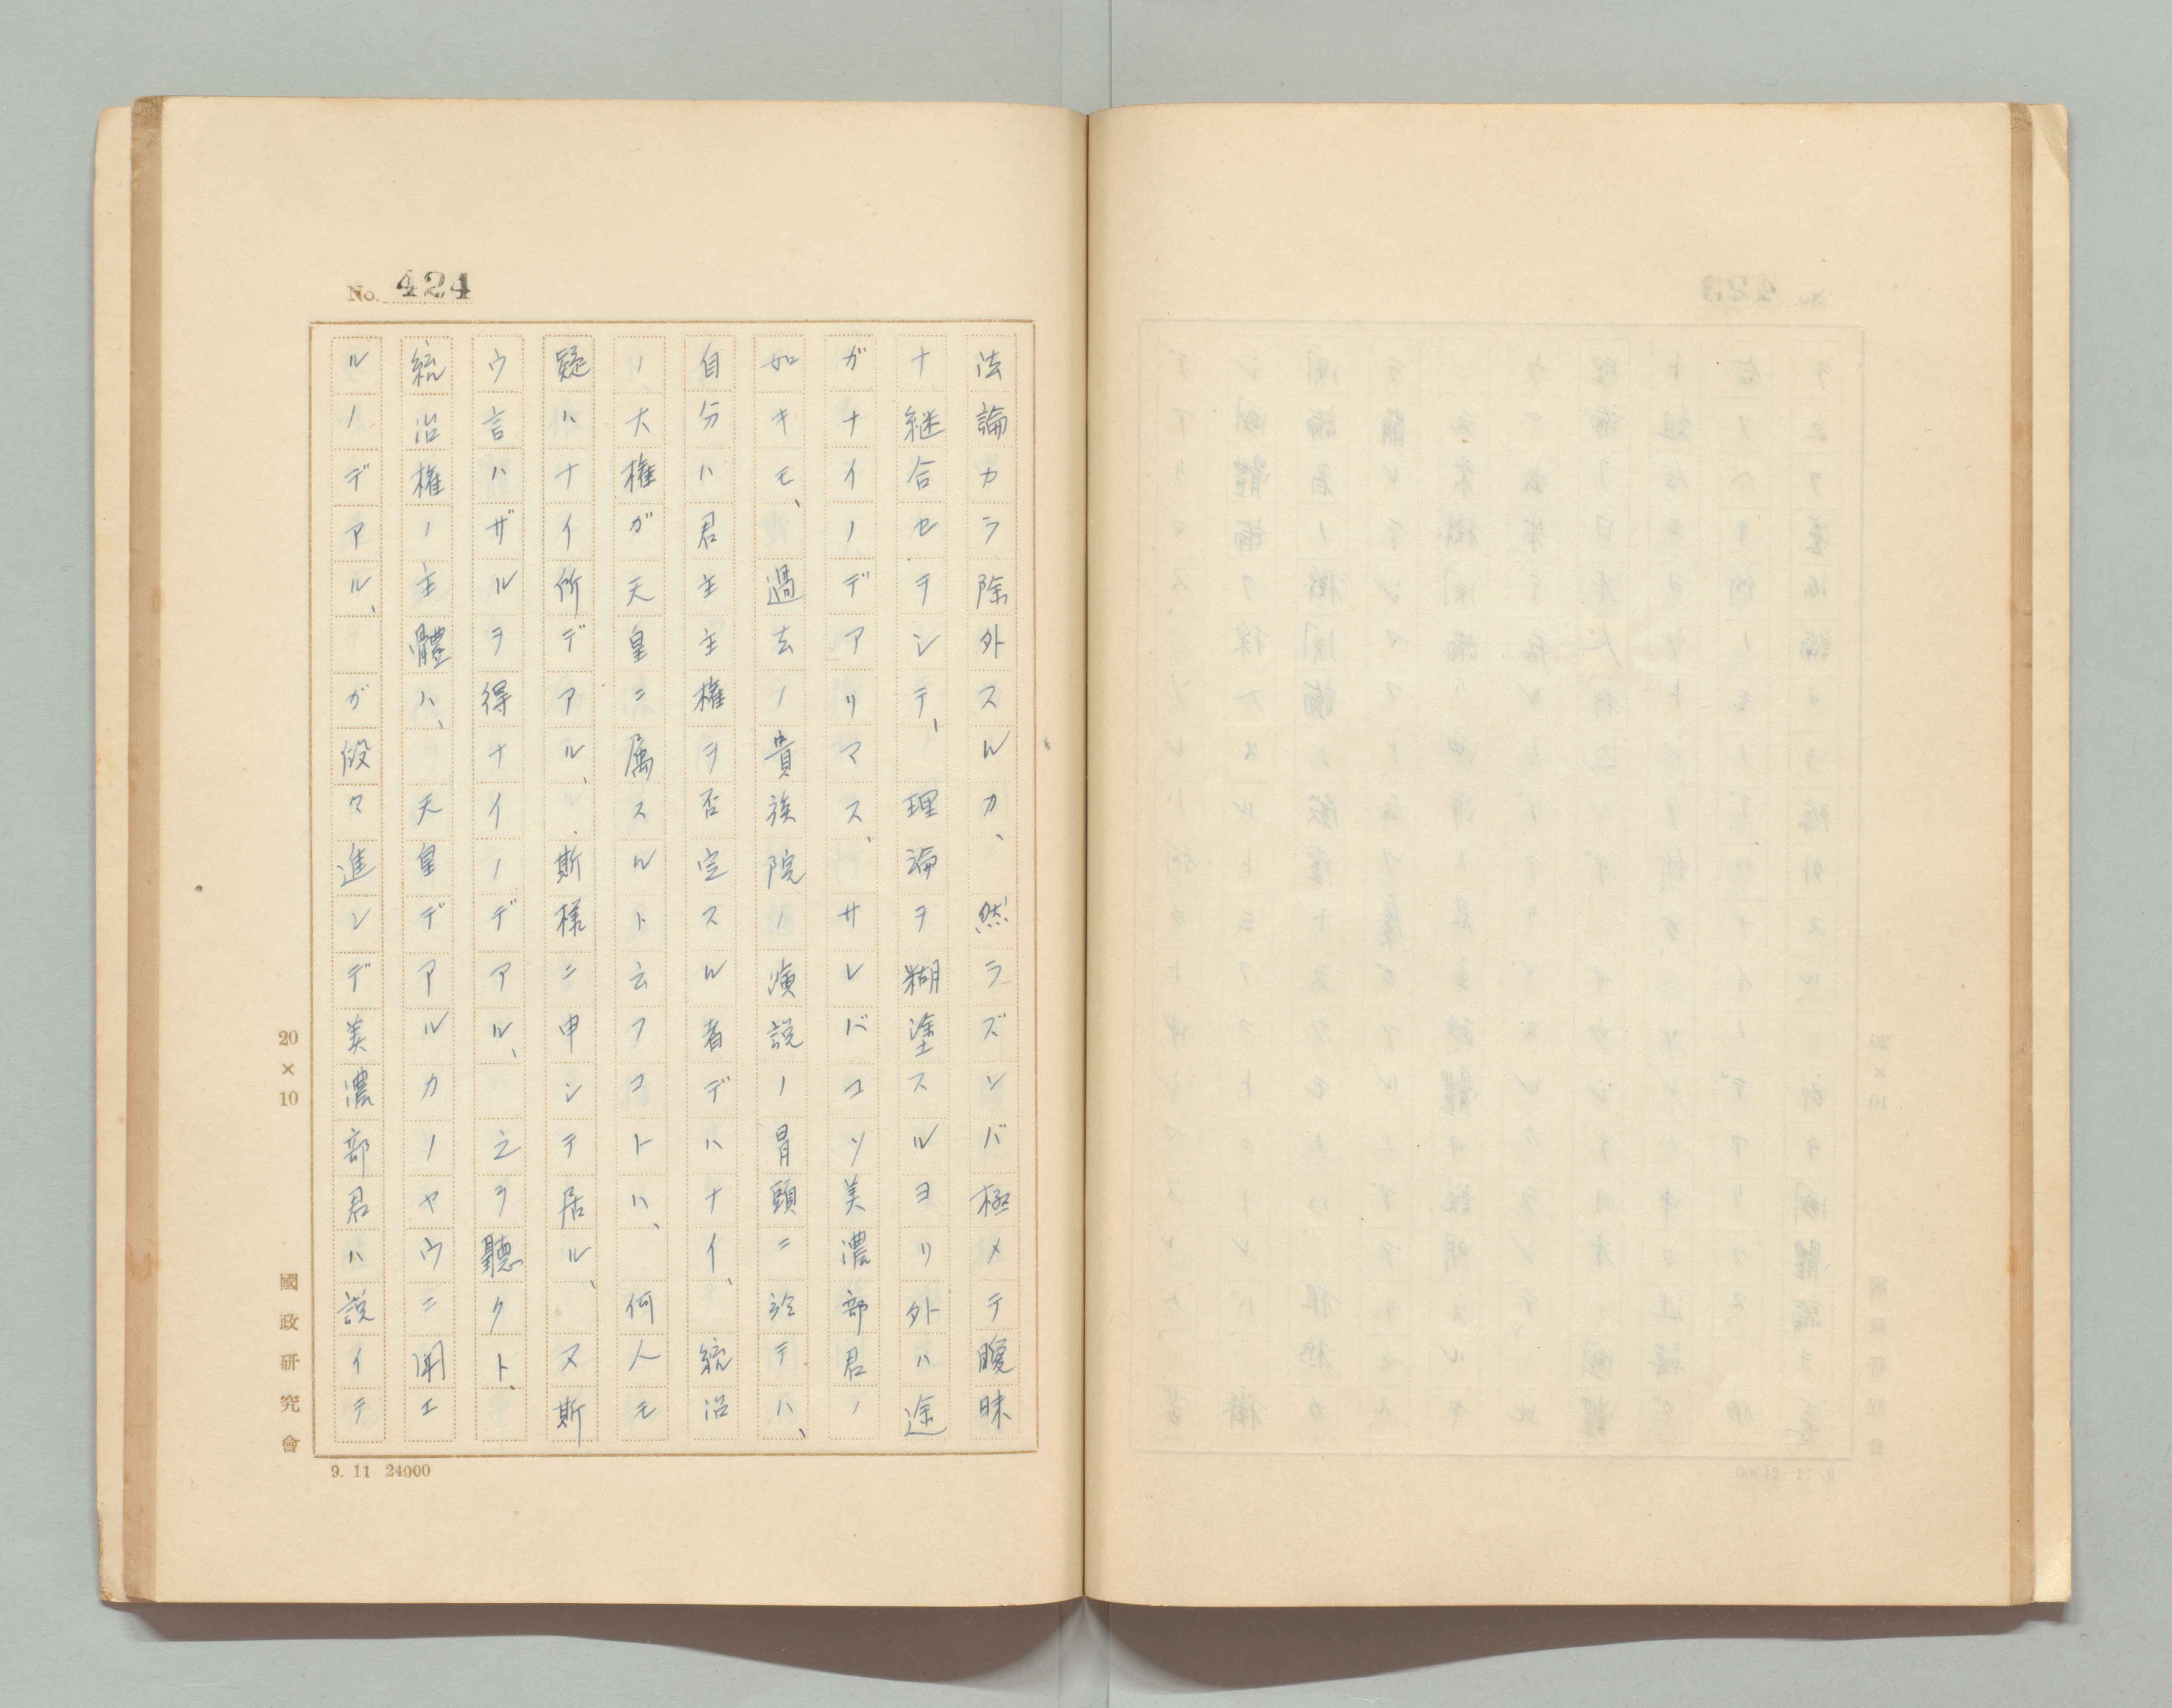 No. 424
法論カラ除外スルカ、然ラズンバ極メテ曖昧
ナ継合セヲシテ、理論ヲ糊塗スルヨリ外ハ途
ガナイノデアリマス、サレバコソ美濃部君ノ
如キモ、過去ノ貴族院ノ演説ノ冒頭ニ於テハ、
自分ハ君主主権ヲ否定スル者デハナイ、統治
ノ大権ガ天皇ニ属スルト云フコトハ、何人モ
疑ハナイ所デアル、斯様ニ申シテ居ル、又斯
ウ言ハザルヲ得ナイノデアル、之ヲ聴クト、
統治権ノ主體ハ、天皇デアルカノヤウニ聞エ
ルノデアル、ガ段々進ンデ美濃部君ハ説イテ
20×10
國政研究會
9. 11 24000